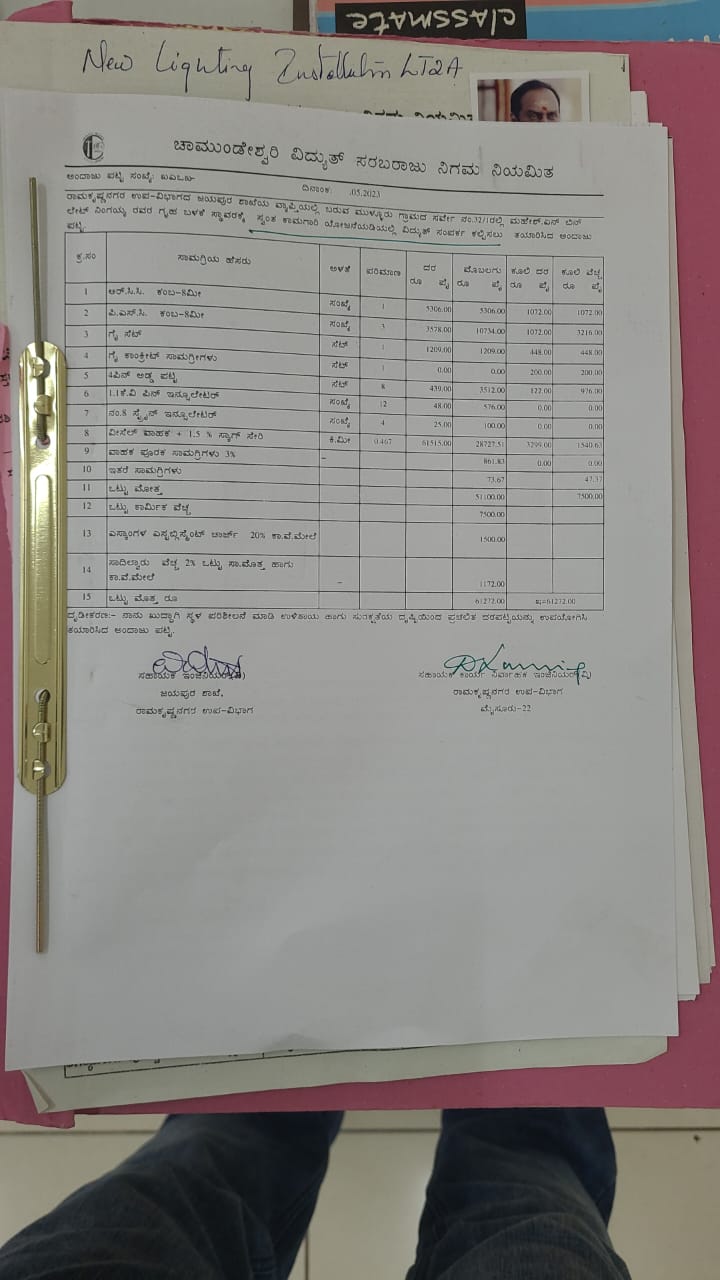 classmate
New Lighting Installation LT2A
ಚಾಮುಂಡೇಶ್ವರಿ ವಿದ್ಯುತ್ ಸರಬರಾಜು ನಿಗಮ ನಿಯಮಿತ
ಅಂದಾಜು ಪಟ್ಟಿ ಸಂಖ್ಯೆ: ದಿನಾಂಕ: .05.2023
ರಾಮಕೃಷ್ಣನಗರ ಉಪ-ವಿಭಾಗದ ಜಯಪುರ ಶಾಖೆಯ ವ್ಯಾಪ್ತಿಯಲ್ಲಿ ಬರುವ ಮುಳ್ಳೂರು ಗ್ರಾಮದ ಸರ್ವೆ ನಂ.32/1ರಲ್ಲಿ ಮಹೇಶ್.ಎನ್ ಬಿನ್
ಲೇಟ್ ನಿಂಗಯ್ಯ ರವರ ಗೃಹ ಬಳಕೆ ಸ್ಥಾವರಕ್ಕೆ ಸ್ವಂತ ಕಾಮಗಾರಿ ಯೋಜನೆಯಡಿಯಲ್ಲಿ ವಿದ್ಯುತ್ ಸಂಪರ್ಕ ಕಲ್ಪಿಸಲು ತಯಾರಿಸಿದ ಅಂದಾಜು
ಪಟ್ಟಿ.
ಕ್ರ.ಸಂ ಸಾಮಗ್ರಿಯ ಹೆಸರು ಅಳತೆ ಪರಿಮಾಣ ದರ ಮೊಬಲಗು ಕೂಲಿ ದರ ಕೂಲಿ ವೆಚ್ಚ
ರೂ ಪೈ ರೂ ಪೈ ರೂ ಪೈ ರೂ ಪೈ
1 ಆರ್.ಸಿ.ಸಿ. ಕಂಬ-8ಮೀ ಸಂಖ್ಯೆ 1 5306.00 5306.00 1072.00 1072.00
2 ಪಿ.ಎಸ್.ಸಿ. ಕಂಬ-8ಮೀ ಸಂಖ್ಯೆ 3 3578.00 10734.00 1072.00 3216.00
3 ಗೈ ಸೆಟ್ ಸೆಟ್ 1 1209.00 1209.00 448.00 448.00
4 ಗೈ ಕಾಂಕ್ರೀಟ್ ಸಾಮಗ್ರೀಗಳು ಸೆಟ್ 1 0.00 0.00 200.00 200.00
5 4ಪಿನ್ ಅಡ್ಡ ಪಟ್ಟಿ ಸೆಟ್ 8 439.00 3512.00 122.00 976.00
6 1.1ಕೆ.ವಿ ಪಿನ್ ಇನ್ಸೂಲೇಟರ್ ಸಂಖ್ಯೆ 12 48.00 576.00 0.00 0.00
7 ನಂ.8 ಸ್ಟ್ರೈನ್ ಇನ್ಸೂಲೇಟರ್ ಸಂಖ್ಯೆ 4 25.00 100.00 0.00 0.00
8 ವೀಸೆಲ್ ವಾಹಕ + 1.5 % ಸ್ಯಾಗ್ ಸೇರಿ ಕಿ.ಮೀ 0.467 61515.00 28727.51 3299.00 1540.63
9 ವಾಹಕ ಪೂರಕ ಸಾಮಗ್ರಿಗಳು 3% – 861.83 0.00 0.00
10 ಇತರೆ ಸಾಮಗ್ರಿಗಳು 73.67 47.37
11 ಒಟ್ಟು ಮೋತ್ತ 51100.00 7500.00
12 ಒಟ್ಟು ಕಾರ್ಮಿಕ ವೆಚ್ಚ 7500.00
13 ಎಸ್ಕಾಂಗಳ ಎಸ್ಟಬ್ಲಿಸ್ಮೆಂಟ್ ಚಾರ್ಜ್ 20% ಕಾ.ವೆ.ಮೇಲೆ 1500.00
14 ಸಾದಿಲ್ವಾರು ವೆಚ್ಚ 2% ಒಟ್ಟು ಸಾ.ಮೊತ್ತ ಹಾಗು
ಕಾ.ವೆ.ಮೇಲೆ – 1172.00
15 ಒಟ್ಟು ಮೊತ್ತ ರೂ 61272.00 =61272.00
ದೃಡೀಕರಣ:- ನಾನು ಖುದ್ದಾಗಿ ಸ್ಥಳ ಪರಿಶೀಲನೆ ಮಾಡಿ ಉಳಿತಾಯ ಹಾಗು ಸುರಕ್ಷತೆಯ ದೃಷ್ಟಿಯಿಂದ ಪ್ರಚಲಿತ ದರಪಟ್ಟಿಯನ್ನು ಉಪಯೋಗಿಸಿ
ತಯಾರಿಸಿದ ಅಂದಾಜು ಪಟ್ಟಿ.
ಸಹಾಯಕ ಇಂಜಿನಿಯರ್(ವಿ)
ಜಯಪುರ ಶಾಖೆ,
ರಾಮಕೃಷ್ಣನಗರ ಉಪ-ವಿಭಾಗ
ಸಹಾಯಕ ಕಾರ್ಯ ನಿರ್ವಾಹಕ ಇಂಜಿನಿಯರ್(ವಿ)
ರಾಮಕೃಷ್ಣನಗರ ಉಪ-ವಿಭಾಗ
ಮೈಸೂರು-22